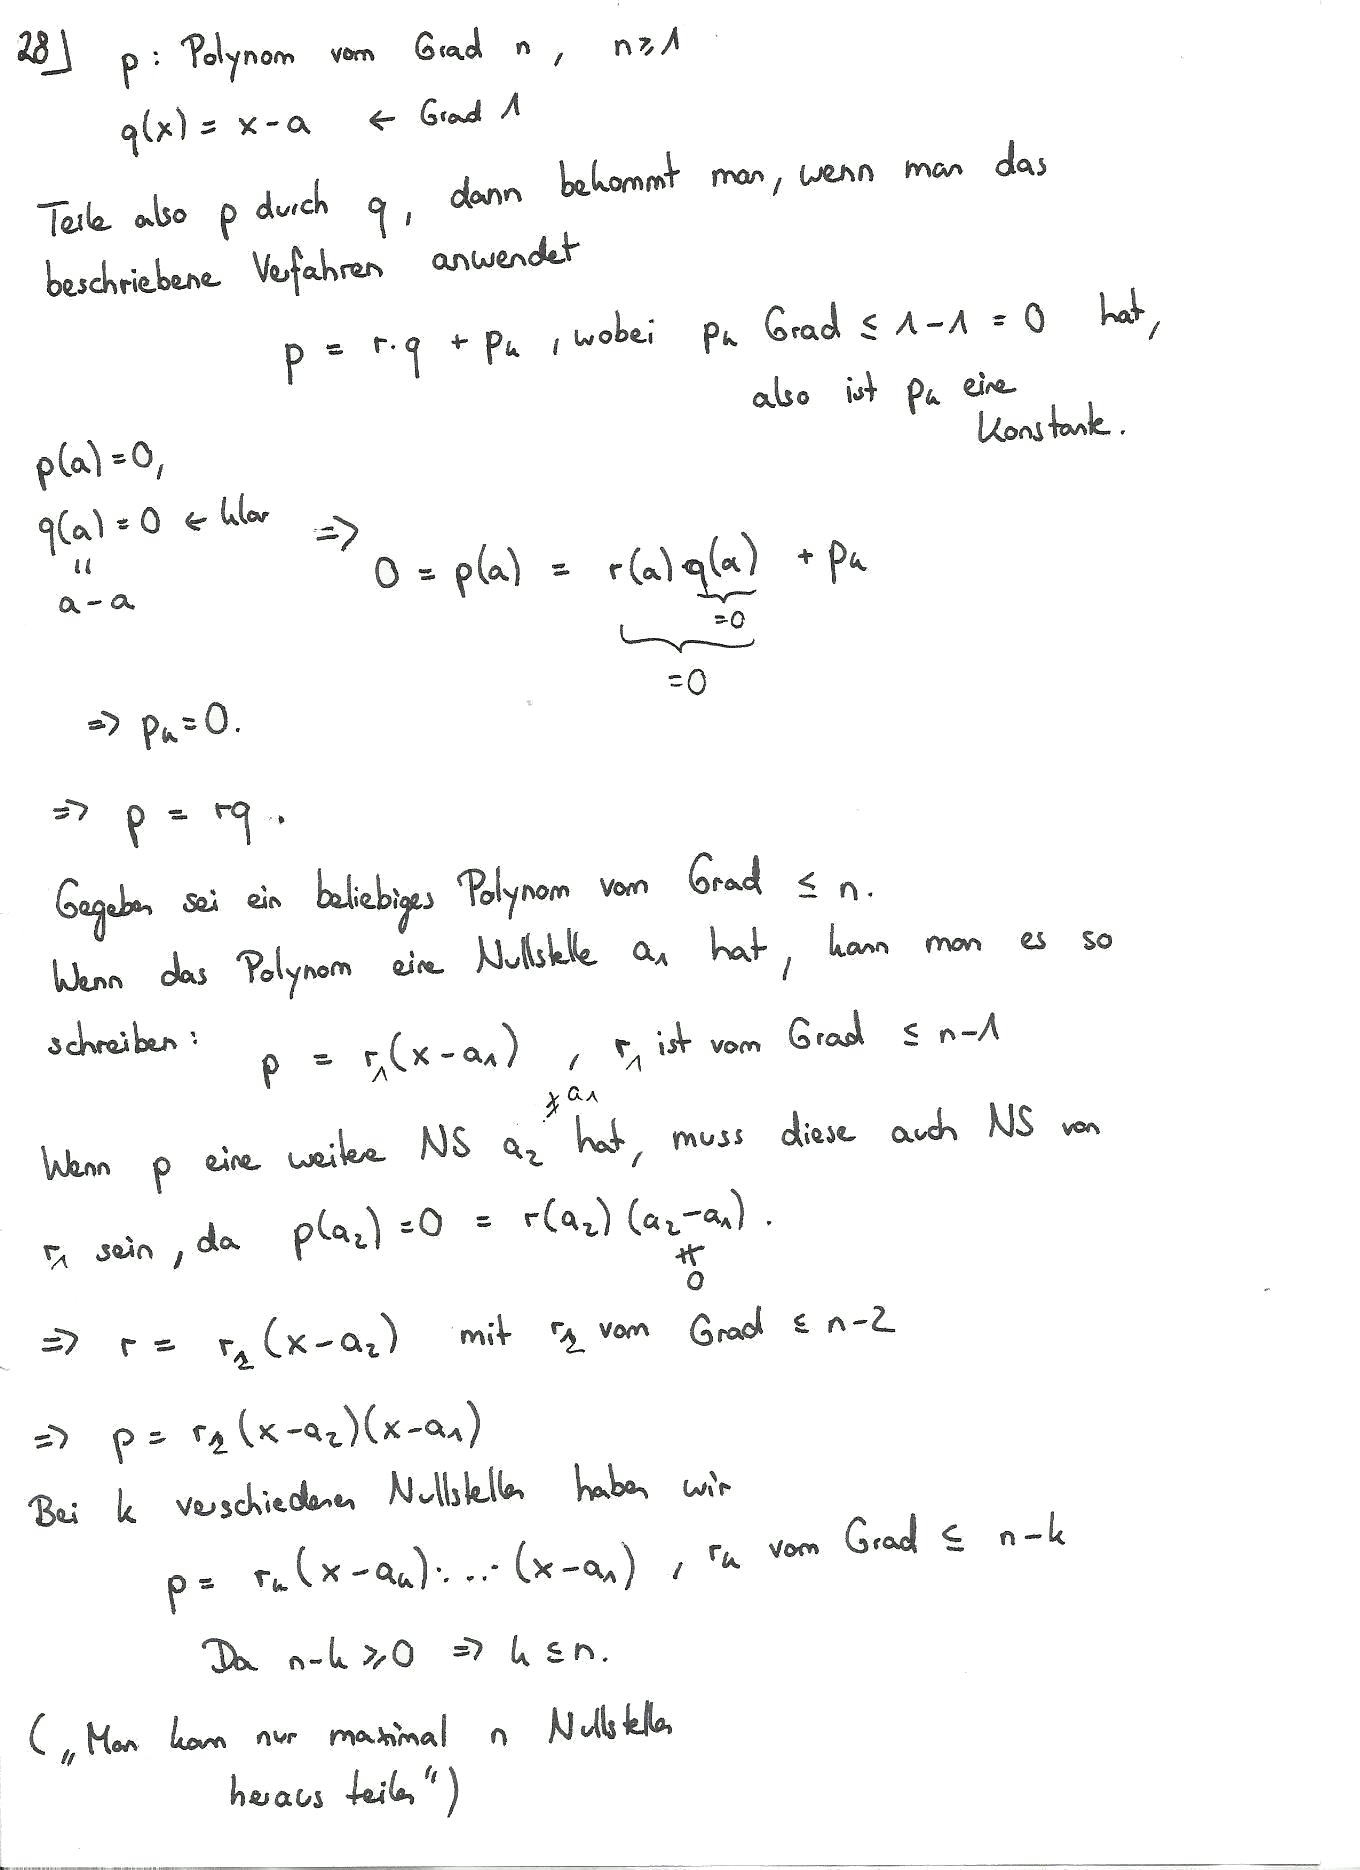 28] p: Polynom vom Grad n, n ≥ 1
q(x) = x-a ← Grad 1
Teile also p durch q, dann bekommt man, wenn man das
beschriebene Verfahren anwendet
p = r·q + pₖ, wobei pₖ Grad ≤ 1-1 = 0 hat,
also ist pₖ eine
Konstante.
p(a)=0,
q(a)=0 ← klar
"
a-a
⇒ 0 = p(a) = r(a) q(a) + pₖ
=0
=0
⇒ pₖ=0.
⇒ p = rq.
Gegeben sei ein beliebiges Polynom vom Grad ≤ n.
Wenn das Polynom eine Nullstelle a₁ hat, kann man es so
schreiben: p = r₁(x-a₁), r₁ ist vom Grad ≤ n-1
≠ a₁
Wenn p eine weitere NS a₂ hat, muss diese auch NS von
r₁ sein, da p(a₂)=0 = r(a₂)(a₂-a₁).
≠
0
⇒ r = r₂(x-a₂) mit r₂ vom Grad ≤ n-2
⇒ p = r₂(x-a₂)(x-a₁)
Bei k verschiedenen Nullstellen haben wir
p = rₖ(x-aₖ)·...·(x-a₁), rₖ vom Grad ≤ n-k
Da n-k ≥ 0 ⇒ k ≤ n.
(„Man kann nur maximal n Nullstellen
heraus teilen")